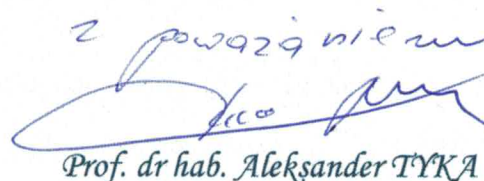 z poważaniem
Prof. dr hab. Aleksander TYKA